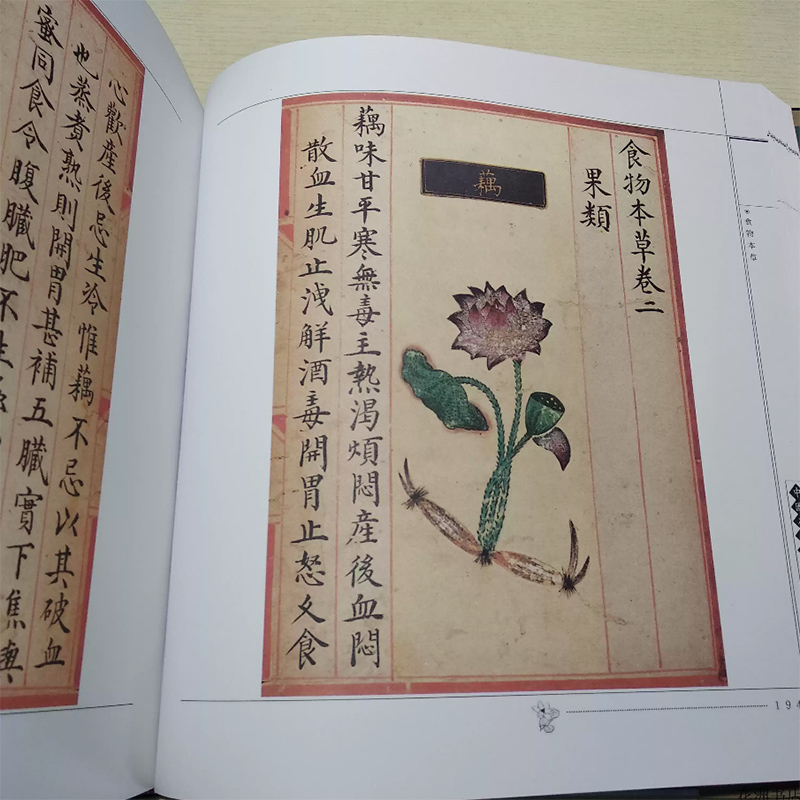 食物本草
食物本草卷二
果類
藕
藕味甘平寒無毒主熱渴煩悶產後血悶
散血生肌止洩解酒毒開胃止怒久食
194
心歡產後忌生冷惟藕不忌以其破血
也蒸煮熟則開胃甚補五臟實下焦與
蜜同食令腹臟肥不生